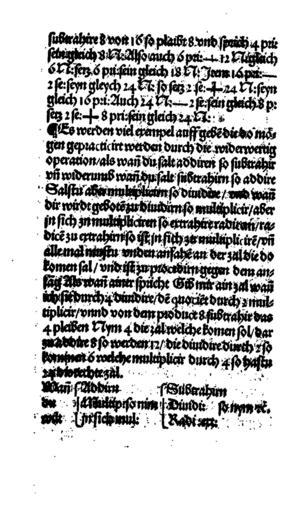 subtrahire 8 von 16 so plaibt 8 vnd sprich 4 pri:
sein gleich 8 N: Also auch 6 pri: — 12 N gleich
6 N: setz 6 pri: sein gleich 18 N: Item 16 pri: —
2 se: seyn gleych 24 N: so setz 2 se: + 24 N: seyn
gleich 16 pri: Auch 24 N: — 2 se: sein gleich 8 p:
setz 2 se: + 8 pri: sein gleich 24 N:
¶ Es werden vil exempel auff gebē die do mö
gen gepracticirt werden durch die widerwertig
operation / als wañ du salt addirn so subtrahir
vñ widerumb wañ du salt subtrahirn so addire
Salstu aber multiplicirn so diuidire / vnd wañ
dir wirdt gebotē zu diuidirn so multiplicir / aber
in sich zu multipliciren so extrahire radicem / ra-
dicē zu extrahirn so ist in sich zu multiplicirē / vñ
alle mal mustu vnden anfahē an der zal die do
komen sal / vnd ist zu procedirn gegen dem an-
fang Als wañ einer spriche Gib mir ain zal wañ
ich sie durch 4 diuidire / dē quociēt durch 2 mul-
tiplicir / vnnd von dem product 8 subtrahir das
4 pleiben Nym 4 die zal welche komen sol / dar
zu addire 8 so werden 12 / die diuidire durch 2 so
komen 6 welche multiplicir durch 4 so hastu
24 die rechte zal.
Wañ Addirn Subtrahirn
du Multip: so nim Diuidi: so nym
in sich mul: Radi: ext: